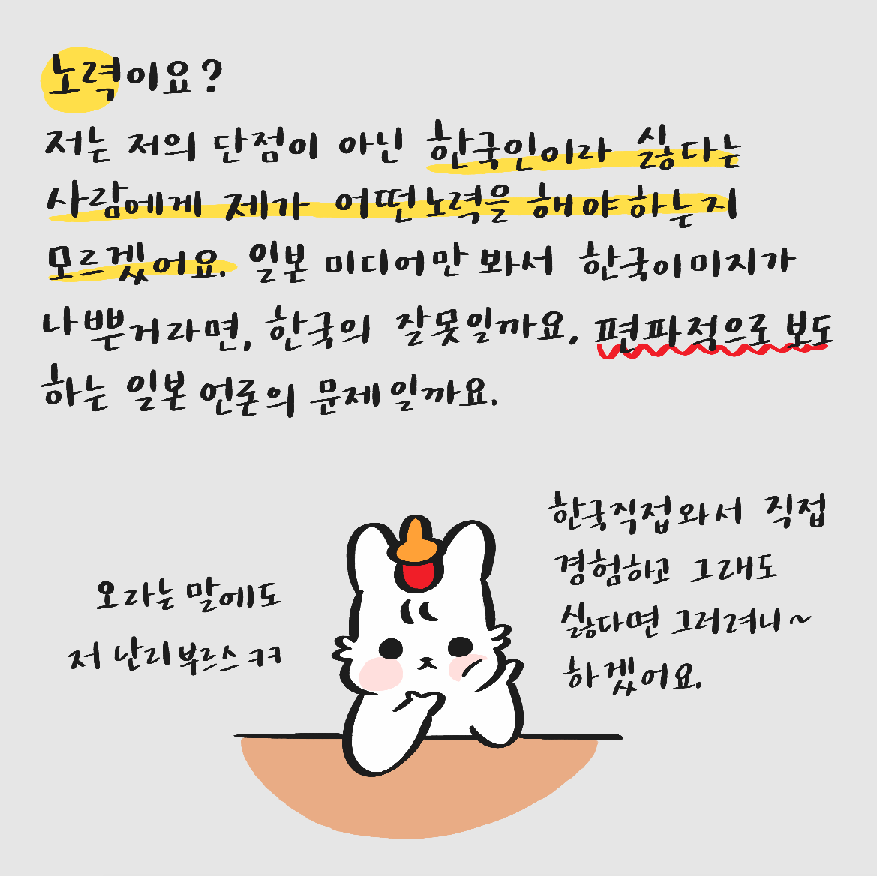 노력이요?
저는 저의 단점이 아닌 한국인이라 싫다는
사람에게 제가 어떤노력을 해야하는지
모르겠어요. 일본 미디어만 봐서 한국이미지가
나쁜거라면, 한국의 잘못일까요, 편파적으로 보도
하는 일본 언론의 문제일까요.
한국직접와서 직접
경험하고 그래도
싫다면 그러려니~
하겠어요.
오라는 말에도
저 난리부르스ㅋㅋ